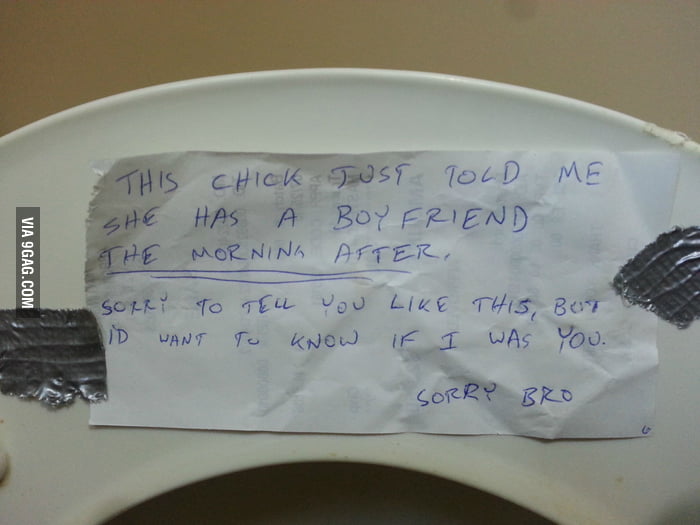 THIS CHICK JUST TOLD ME
SHE HAS A BOYFRIEND
THE MORNING AFTER.
SORRY TO TELL YOU LIKE THIS, BUT
I'D WANT TO KNOW IF I WAS YOU.
SORRY BRO
VIA 9GAG.COM